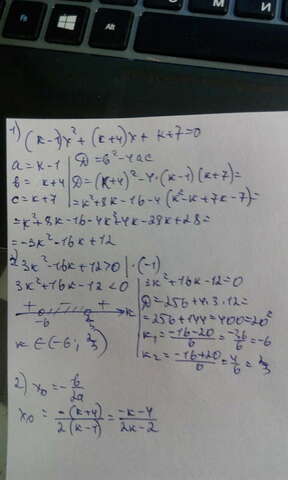 Ctrl
Alt
1) (k-1)x²+(k+4)x+k+7=0
a=k-1 | D=b²-4ac
b=k+4 | D=(k+4)²-4·(k-1)(k+7)=
c=k+7 | =k²+8k-16-4(k²-k+7k-7)=
=k²+8k-16-4k²+4k-28k+28=
=-3k²-16k+12
-3k²-16k+12>0 |·(-1)
3k²+16k-12<0 | 3k²+16k-12=0
D=256+4·3·12=
=256+144=400=20²
+ - + k
-6 2/3
k₁=(-16-20)/6=-36/6=-6
k∈(-6; 2/3)
k₂=(-16+20)/6=4/6=2/3
2) x₀=-b/2a
x₀=-(k+4)/2(k-1)=(-k-4)/(2k-2)